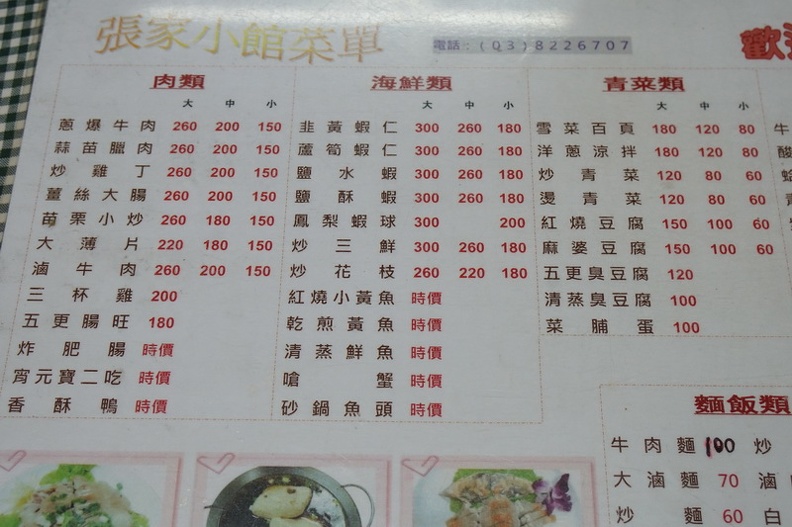 張家小館菜單
電話：(03)8226707
歡
肉類
大 中 小
蔥爆牛肉 260 200 150
蒜苗臘肉 260 200 150
炒雞丁 260 200 150
薑絲大腸 260 200 150
苗栗小炒 260 180 150
大薄片 220 180 150
滷牛肉 260 200 150
三杯雞 200
五更腸旺 180
炸肥腸 時價
宵元寶二吃 時價
香酥鴨 時價
海鮮類
大 中 小
韭黃蝦仁 300 260 180
蘆筍蝦仁 300 260 180
鹽水蝦 300 260 180
鹽酥蝦 300 260 180
鳳梨蝦球 300 200
炒三鮮 300 260 180
炒花枝 260 220 180
紅燒小黃魚 時價
乾煎黃魚 時價
清蒸鮮魚 時價
嗆蟹 時價
砂鍋魚頭 時價
青菜類
大 中 小
雪菜百頁 180 120 80
洋蔥涼拌 180 120 80
炒青菜 120 80 60
燙青菜 120 80 60
紅燒豆腐 150 100 60
麻婆豆腐 150 100 60
五更臭豆腐 120
清蒸臭豆腐 100
菜脯蛋 100
牛
酸
麵飯類
牛肉麵 100 炒
大滷麵 70 滷
炒麵 60 白